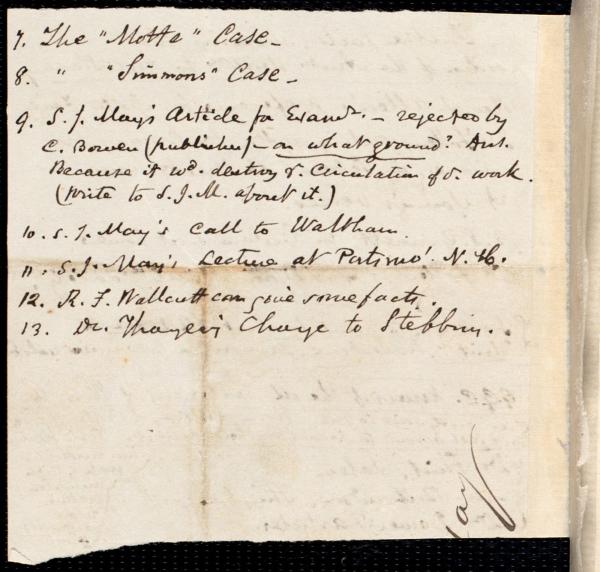 7. The "Motte" Case -
8. " "Simmons" Case -
9. S. J. May's Article for Examr. - rejected by
C. Bowen (publisher) - on what ground? Ans.
Because it wd. destroy ye. Circulation of ye. work.
(write to S. J. M. about it.)
10. S. J. May's call to Waltham.
11. S. J. May's Lecture at Portsmo' N. H.
12. R. F. Wallcutt can give some facts.
13. Dr. Thayer's Charge to Stebbins.
ay